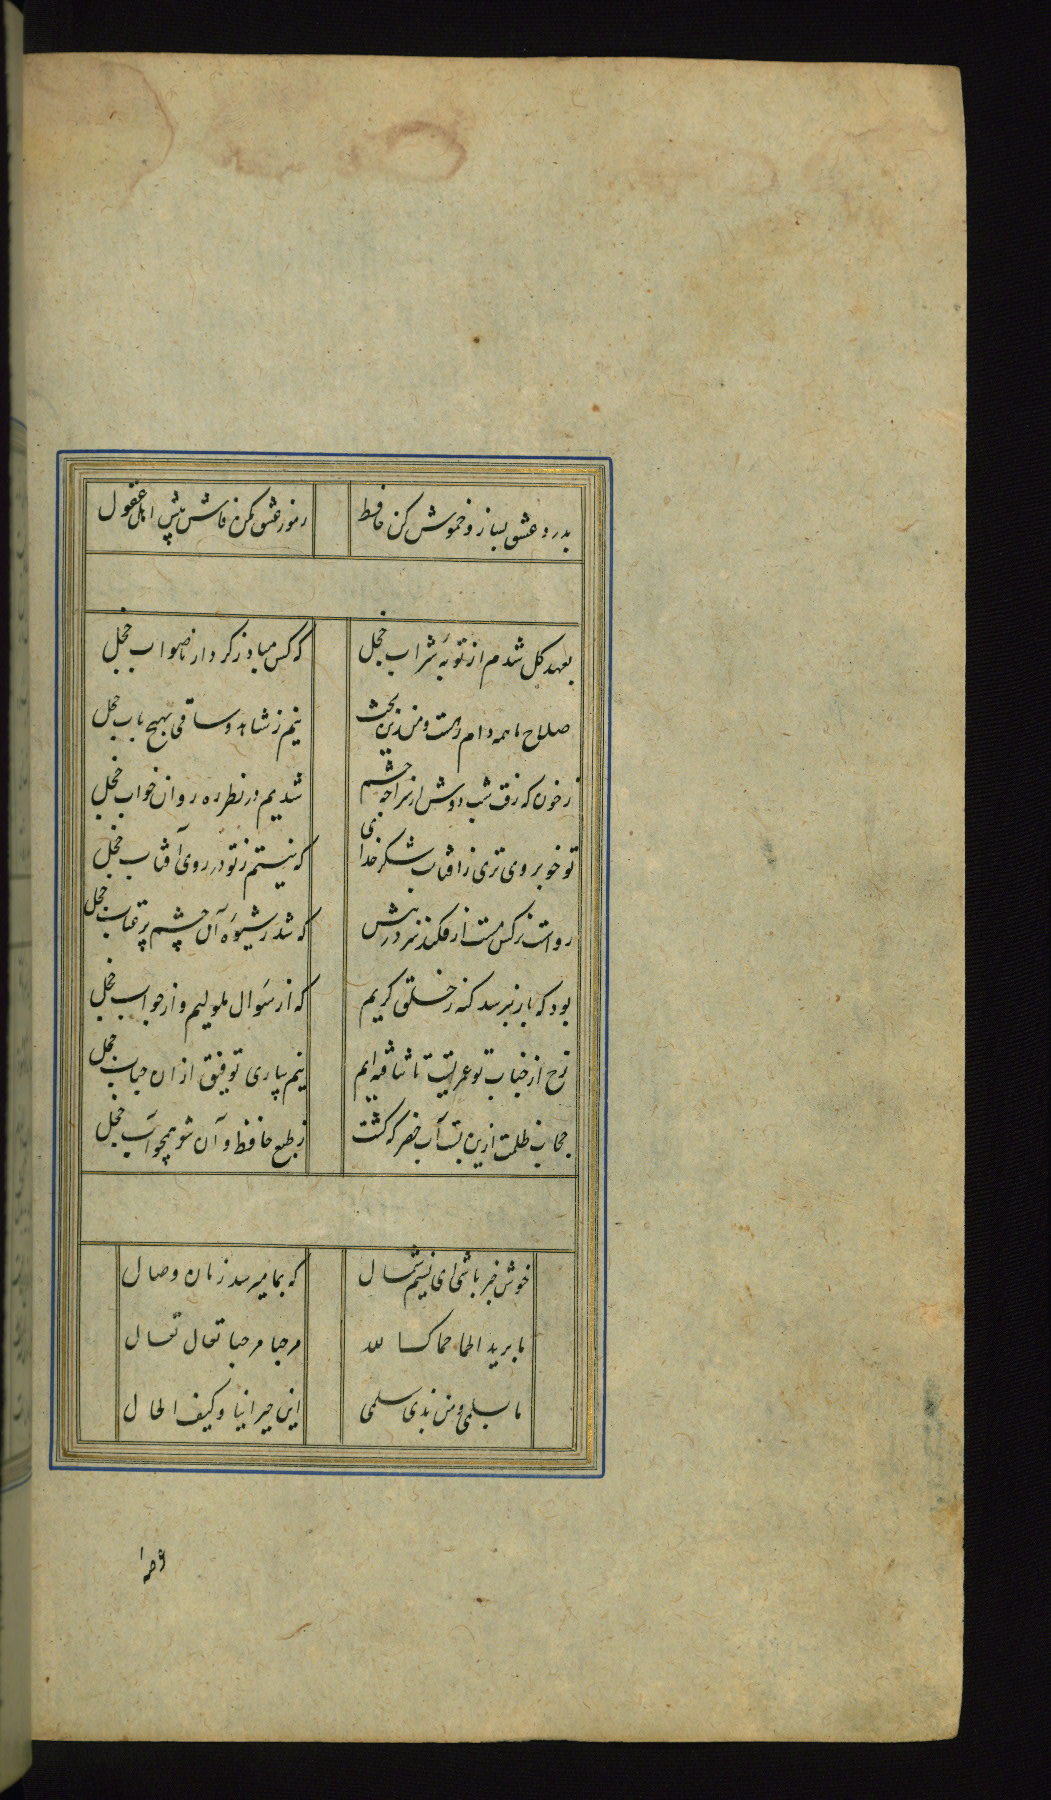 بدرد عشق بساز و خموش کن حافظ رموز عشق مکن فاش پیش اهل عقول
بعهد کل شدم از توبهٔ شراب خجل که کس مباد ز کردار ناصواب خجل
صلاح ما همه دام رهست و من زین بحث نیم ز شاهد و ساقی بهیچ باب خجل
ز خون که رفت شب دوش از سراچه چشم شدیم در نظر ره روان خواب خجل
تو خوبروی تری ز آفتاب شکر خدای که نیستم ز تو در روی آفتاب خجل
رواست نرکس مست ار فکند سر در پیش که شد ز شیوهٔ آن چشم پر عتاب خجل
بود که یار نپرسد کنه ز خلق کریم که از سؤال ملولیم و از جواب خجل
رخ از جناب تو عمریست تا نتافته‌ایم نیم بیاری توفیق ازان جناب خجل
حجاب ظلمت ازین بست آب خضر که کشت ز طبع حافظ و آن شعر همچو آب خجل
خوش خبر باشی ای نسیم شمال که بما میرسد زمان وصال
یا برید الحما حماک الله مرحبا مرحبا تعال تعال
ما بسلمی و من بذی سلمی این جیراننا و کیف الحال